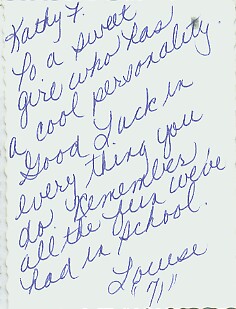 Kathy F.
To a sweet
girl who has
a cool personality.
Good Luck in
every thing you
do. Remember
all the fun we've
had in school.
Louise
"71"